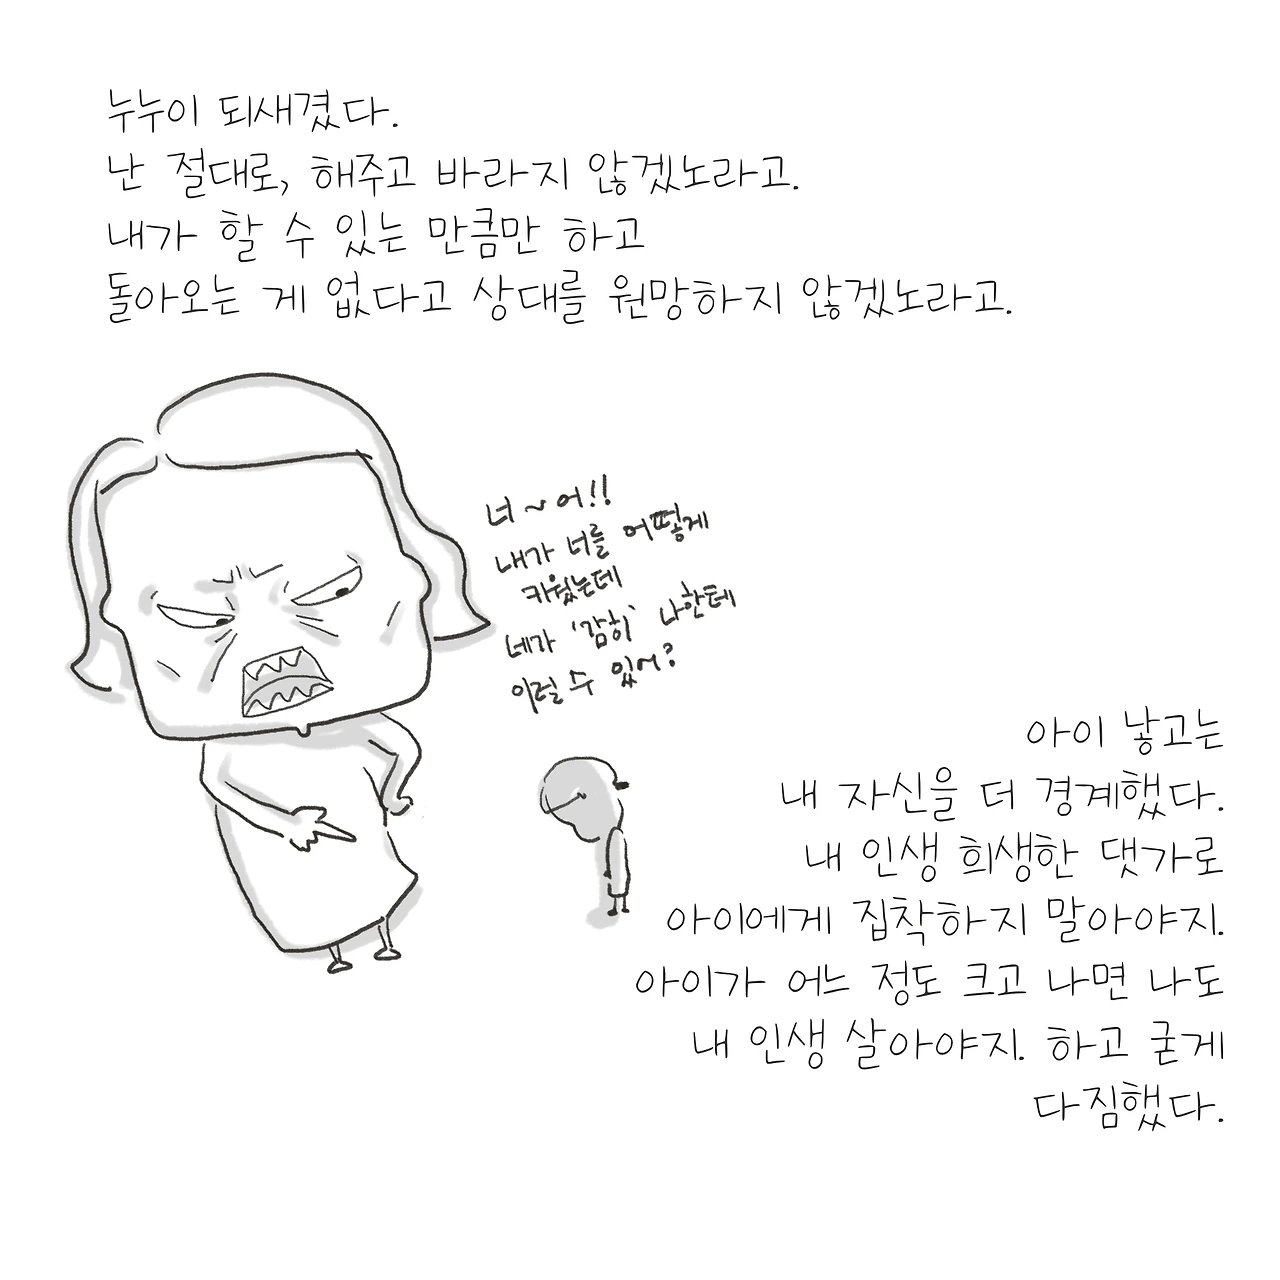 누누이 되새겼다.
난 절대로, 해주고 바라지 않겠노라고.
내가 할 수 있는 만큼만 하고
돌아오는 게 없다고 상대를 원망하지 않겠노라고.
너~어!!
내가 너를 어떻게
키웠는데
네가 '감히' 나한테
이럴 수 있어?
아이 낳고는
내 자신을 더 경계했다.
내 인생 희생한 댓가로
아이에게 집착하지 말아야지.
아이가 어느 정도 크고 나면 나도
내 인생 살아야지. 하고 굳게
다짐했다.